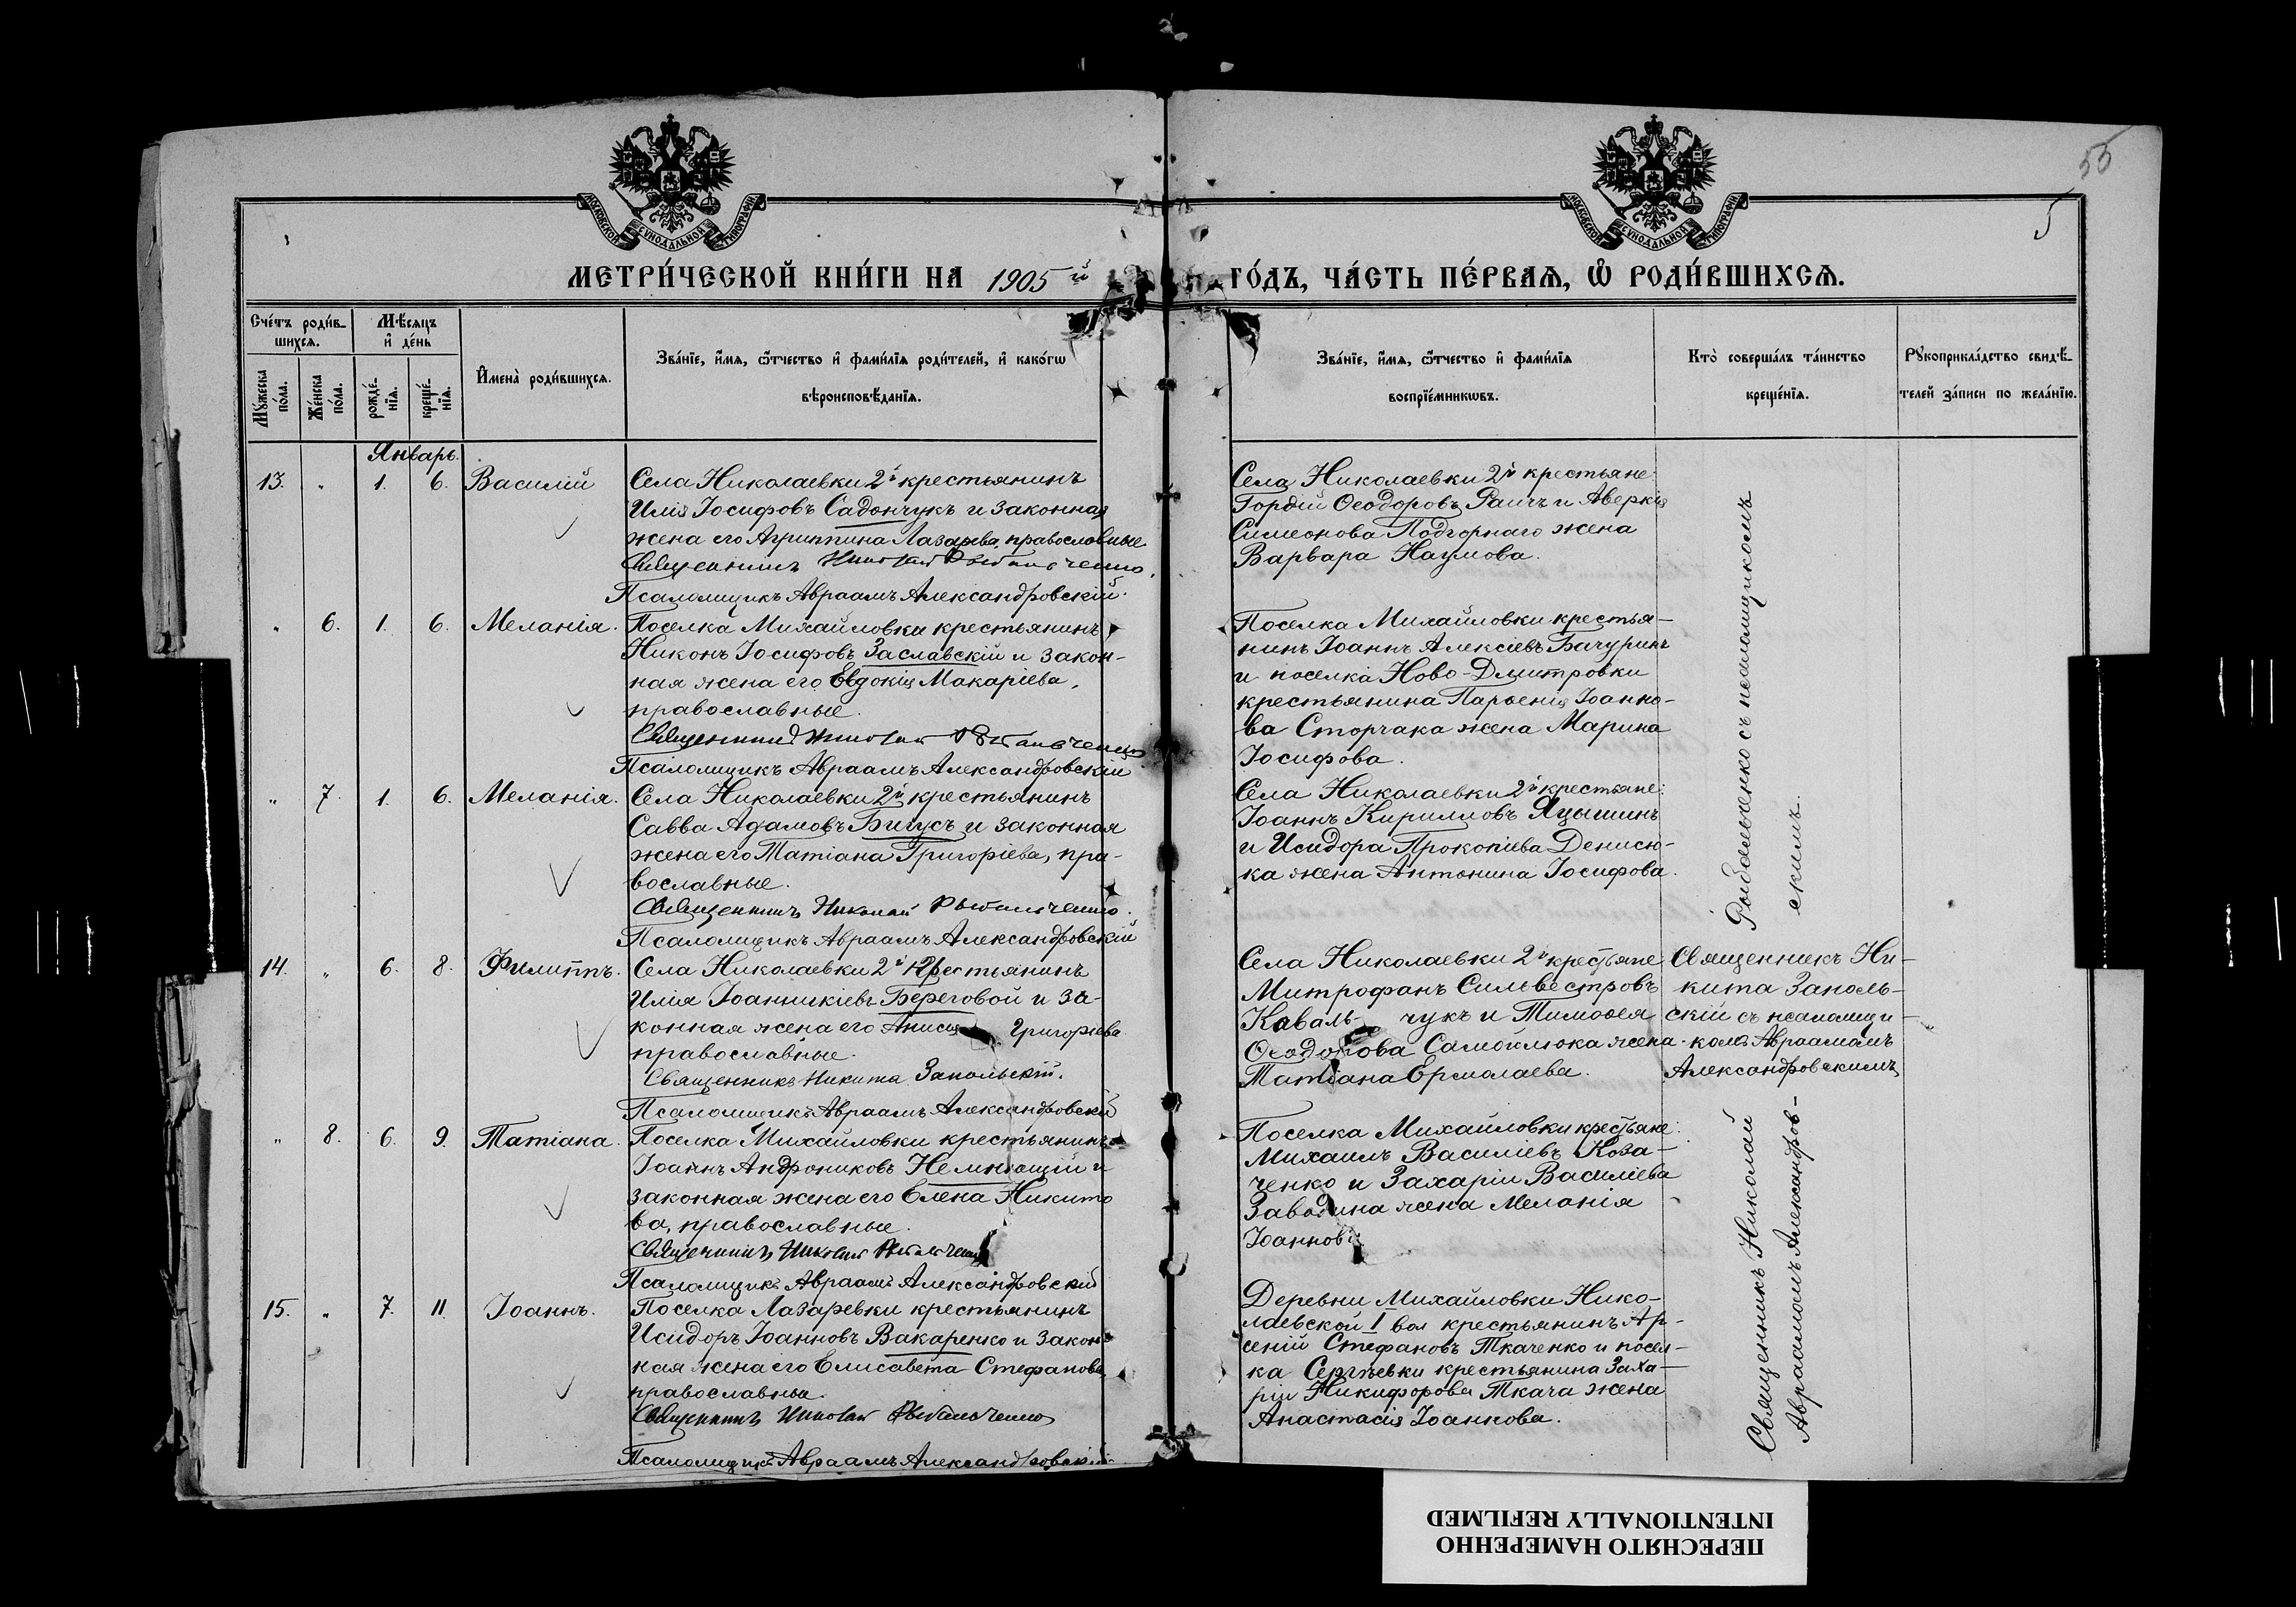 55
5
МОСКОВСКОЙ СѴНОДАЛЬНОЙ ТИПОГРАФІИ
МОСКОВСКОЙ СѴНОДАЛЬНОЙ ТИПОГРАФІИ
МЕТРИ́ЧЕСКОЙ КНИ́ГИ НА 1905й
ГО́ДЪ, ЧА́СТЬ ПЕ́РВАѦ, Ѡ҆ РОДИ́ВШИХСѦ.
Сче́тъ роди́в-
шихсѧ.
Мꙋ́жеска
по́ла.
Же́нска
по́ла.
Мѣ́сѧцъ
и҆ де́нь
рожде́-
нїѧ.
креще́-
нїѧ.
И҆мена̀ роди́вшихсѧ.
Зва́нїе, и҆́мѧ, ѻ҆́тчество и҆ фами́лїѧ роди́телей, и҆ како́гѡ
вѣроисповѣ́данїѧ.
Зва́нїе, и҆́мѧ, ѻ҆́тчество и҆ фами́лїѧ
воспрїе́мникѡвъ.
Кто̀ соверша́лъ та́инство
креще́нїѧ.
Рꙋкоприкла́дство свидѣ́-
телей за́писи по жела́нїю.
Январь.
13. " 1. 6. Василій
Села Николаевки 2й крестьянинъ
Илія Іосифовъ Садончукъ и законная
жена его Агриппина Лазарева, православные
Священникъ Николай Рыбальченко.
Псаломщикъ Авраамъ Александровскій.
Села Николаевки 2й крестьяне:
Гордій Ѳеодоровъ Раичъ и Аверкія
Симеонова Подгорнаго жена
Варвара Наумова.
" 6. 1. 6. Меланія.
Поселка Михайловки крестьянинъ
Никонъ Іосифовъ Заславскій и закон-
ная жена его Евдокія Макаріева,
православные.
Священникъ Николай Рыбальченко
Псаломщикъ Авраамъ Александровскій
Поселка Михайловки крестья-
нинъ Іоаннъ Алексіевъ Бачуринъ
и поселка Ново-Дмитровки
крестьянина Парѳенія Іоанно-
ва Сторчака жена Марина
Іосифова.
" 7. 1. 6. Меланія.
Села Николаевки 2й крестьянинъ
Савва Адамовъ Бигусъ и законная
жена его Татіана Григоріева, пра-
вославные.
Священникъ Николай Рыбальченко.
Псаломщикъ Авраамъ Александровскій
Села Николаевки 2й крестьяне:
Іоаннъ Кирилловъ Яцышинъ
и Исидора Прокопіева Денисю-
ка жена Антонина Іосифова.
Рыбальченко съ псаломщикомъ
скимъ.
14. " 6. 8. Филиппъ.
Села Николаевки 2й крестьянинъ
Илія Іоанникіевъ Береговой и за-
конная жена его Анисія Григоріева
православные.
Священникъ Никита Запольскій.
Псаломщикъ Авраамъ Александровскій
Села Николаевки 2й крестьяне
Митрофанъ Сильвестровъ
Коваль- чукъ и Тимоѳея
Ѳеодорова Самойлюка жена
Татіана Ермолаева.
Священникъ Ни-
кита Заполь-
скій съ псаломщи-
комъ Авраамомъ
Александровскимъ
" 8. 6. 9. Татіана.
Поселка Михайловки крестьянинъ
Іоаннъ Андрониковъ Немнющій и
законная жена его Елена Никито
ва, православные.
Священникъ Николай Рыбальченко
Псаломщикъ Авраамъ Александровскій
Поселка Михайловки крестьяне:
Михаилъ Василіевъ Коза-
ченко и Захаріи Василіева
Заводина жена Меланія
Іоаннова
15. " 7. 11. Іоаннъ.
Поселка Лазаревки крестьянинъ
Исидоръ Іоанновъ Вакаренко и закон-
ная жена его Елисавета Стефанова
православные.
Священникъ Николай Рыбальченко
Псаломщикъ Авраамъ Александровскій.
Деревни Михайловки Нико-
лаевской I вол крестьянинъ Ар-
сеній Стефановъ Ткаченко и посел-
ка Сергѣевки крестьянина Заха-
ріи Никифорова Ткача жена
Анастасія Іоаннова.
Священникъ Николай
Авраамомъ Александров-
ПЕРЕСНЯТО НАМЕРЕННО
INTENTIONALLY REFILMED